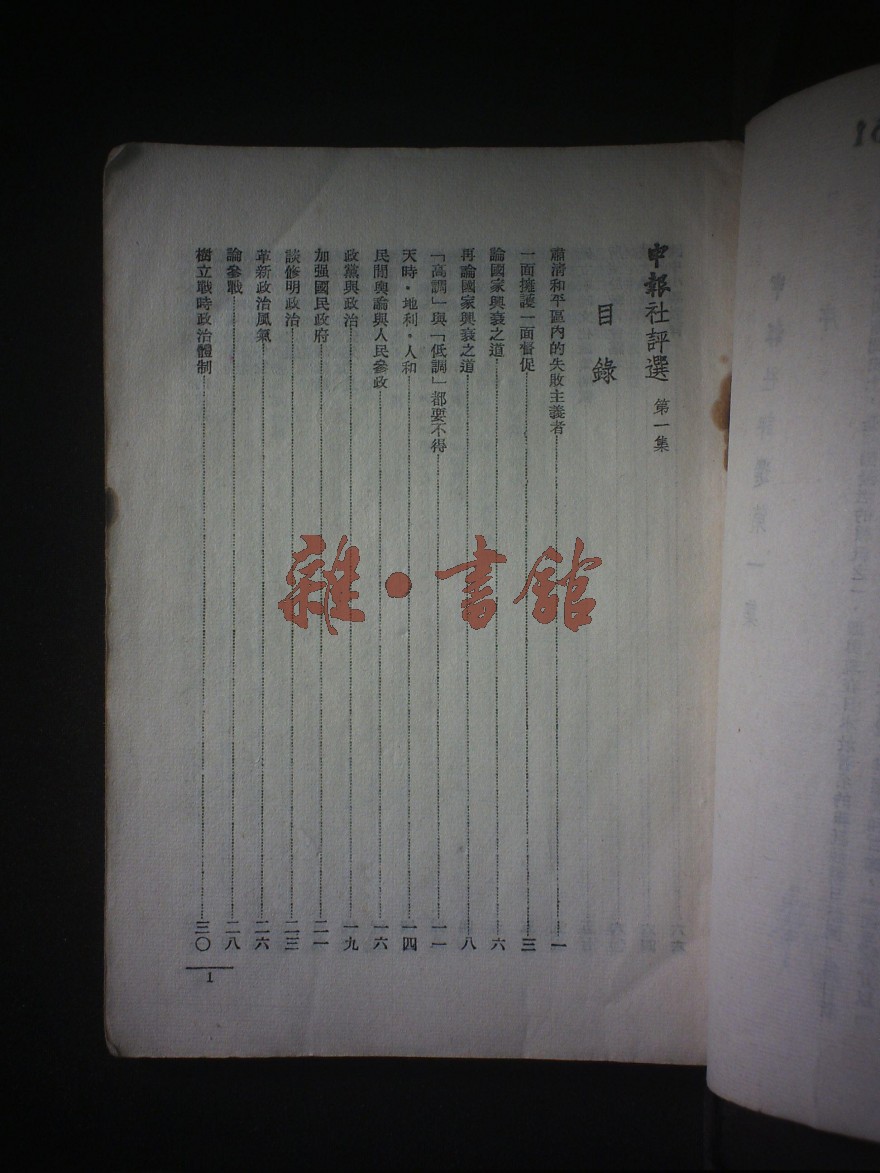 申報社評選 第一集
目錄
肅清和平區內的失敗主義者……一
一面擁護一面督促……三
論國家興衰之道……六
再論國家興衰之道……八
「高調」與「低調」都要不得……一一
天時・地利・人和……一四
民間輿論與人民參政……一六
政黨與政治……一九
加强國民政府……二一
談修明政治……二三
革新政治風氣……二六
論參戰……二八
樹立戰時政治體制……三〇
1
雜・書館